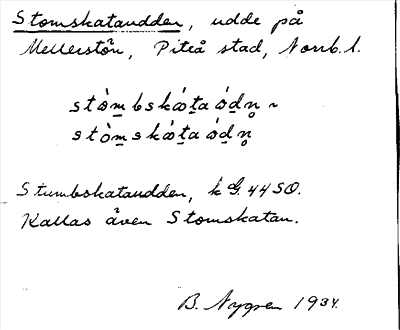 Stomskataudden, udde på
Mellerstön, Piteå stad, Norrb. l.
stò̀m̱bskáṯa ód̲n̥ ~
stò̀m̱skáṯa ód̲n̥
Stumbskataudden, k G. 44 SO.
Kallas även Stomskatan.
B. Nygren 1934.